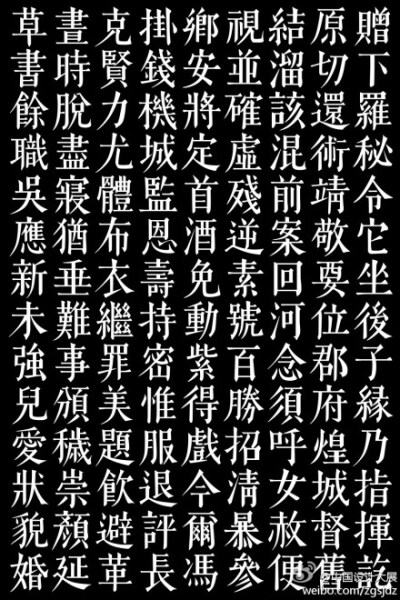 草晝克掛鄉視結原贈
書時賢錢安並溜切下
餘脫力機將確該還羅
職盡尤城定虛混術秘
吳寢體監首殘前靖令
應猶布恩酒逆案敬它
新垂衣壽免素回要坐
未難繼持動號河位後
強事罪密紫百念郡子
兒頒美惟得勝須府緣
愛穢題服戲招呼煌乃
狀崇飲退今清女城指
貌顏避評爾暴赦督揮
婚延革長馮參便舊訖
@中国设计大展
weibo.com/zgsjdz